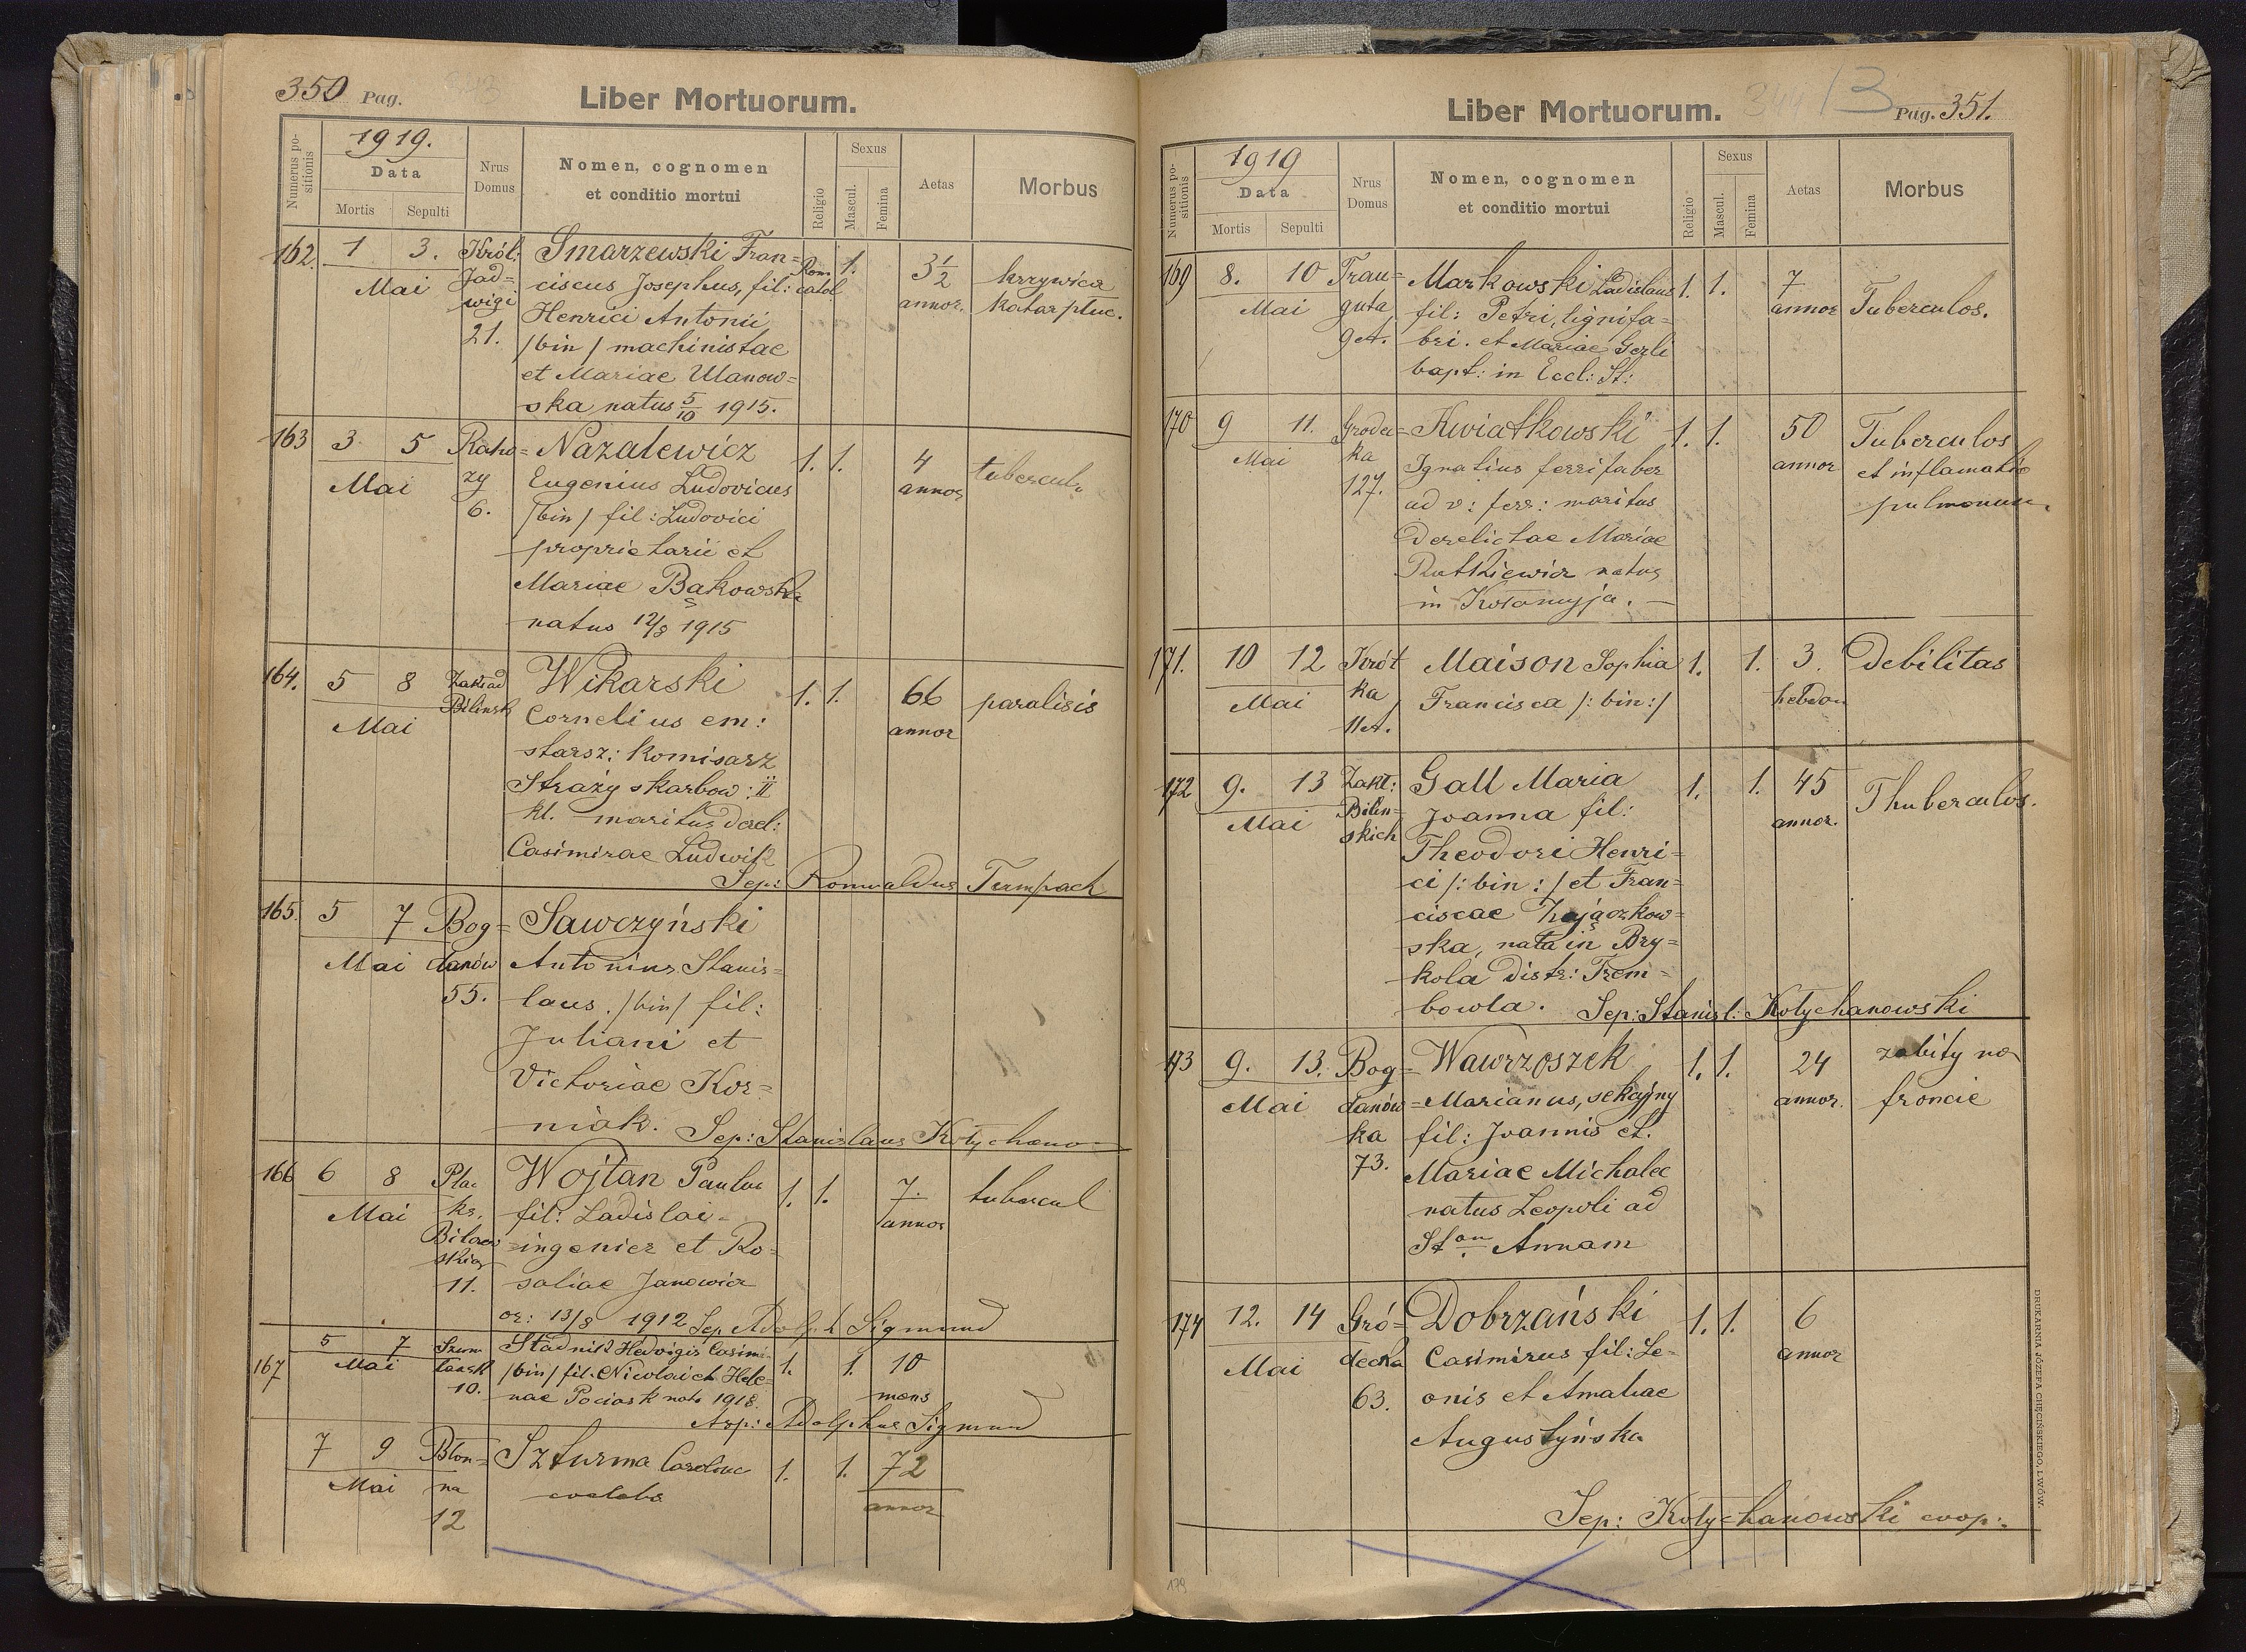 350 Pag.
Liber Mortuorum.
Numerus positionis
1919.
Data
Mortis
Sepulti
Nrus Domus
Nomen, cognomen
et conditio mortui
Religio
Sexus
Mascul.
Femina
Aetas
Morbus
162. 1 3. Mai
Król:
Jad=
wigi
21.
Smarzewski Fran=
ciscus Josephus, fil:
Henrici Antonii
/bin/ machinistae
et Mariae Ulanow=
ska natus 5/10 1915.
Rom catol
1.
3 1/2
annor.
krzywica
katar płuc.
163 3 5 Mai
Raho=
zy
6.
Nazalewicz
Eugenius Ludovicus
/bin/ fil: Ludovici
proprietarii et
Mariae Bakowska
natus 12/8 1915
1. 1.
4
annor
tubercul
164. 5 8 Mai
Zakład
Bilinsk
Wikarski
Cornelius em:
starsz: Komisarz
Straży skarbow: II
kl. maritus derel:
Casimirae Ludwik
1. 1.
66
annor
paralisis
Sep: Romualdus Tumpach
165. 5 7 Mai
Bog=
danów
55.
Sawczyński
Antonius Stanis=
laus. /bin/ fil:
Juliani et
Victoriae Kor=
niak.
Sep: Stanislaus Kotychano
166 6 8 Mai
Plac
ks.
11.
Wojtan Paulus
fil: Ladislai
ingenier et Ro=
saliae Janowicz
or: 13/8 1912
1. 1.
7.
annor
tubercul
Sep Adolph Sigmund
167 5 7 Mai
10.
Stadnik Hedvigis Casimi
/bin/ fil. Nicolai et Hele=
nae Pociask nata 1918.
1. 1.
10
mens
Adolphus Sigmund
7 9 Mai
Blon=
na
12
Szturma Carolina
coelebs
1. 1.
72
annor
Liber Mortuorum.
344 13
Pag. 351.
Numerus positionis
1919
Data
Mortis
Sepulti
Nrus Domus
Nomen, cognomen
et conditio mortui
Religio
Sexus
Mascul.
Femina
Aetas
Morbus
169 8. 10 Mai
Trau=
guta
9A.
Markowski Ladislaus
fil: Petri, lignifa=
bri. et Mariae Gerli
bapt: in Eccl: St:
1. 1.
7
annor
Tuberculos.
170 9 11. Mai
Grodec=
ka
127.
Kwiatkowski
Ignatius ferrifaber
ad v: ferr: maritus
Derelictae Mariae
Rutkiewicz natus
in Kołomyja. —
1. 1.
50
annor
Tuberculos
et inflamatio
pulmonum.
171. 10 12 Mai
Krót
ka
11A.
Maison Sophia
Francisca /: bin:/
1. 1.
3.
hebdom
Debilitas
172 9. 13 Mai
Zakł:
Bilin=
skich
Gall Maria
Joanna fil:
Theodori Henri=
ci /: bin :/ et Fran=
ciscae Zajączkow=
ska, nata in Bry=
kola distr: Trem=
bowla.
1. 1.
45
annor.
Thuberculos.
Sep: Stanisl: Kotychanowski
173 9. 13. Mai
Bog=
danów=
ka
73.
Wawrzoszek
Marianus, sekcyjny
fil: Joannis et.
Mariae Michalec
natus Leopoli ad
St am Annam
1. 1.
24
annor.
zabity na
froncie
174 12. 14 Mai
Gró=
decka
63.
Dobrzański
Casimirus fil: Le=
onis et Amaliae
Augustyńska
1. 1.
6
annor
Sep: Kotychanowski coop:
DRUKARNIA JÓZEFA CHĘCIŃSKIEGO, LWÓW.
179